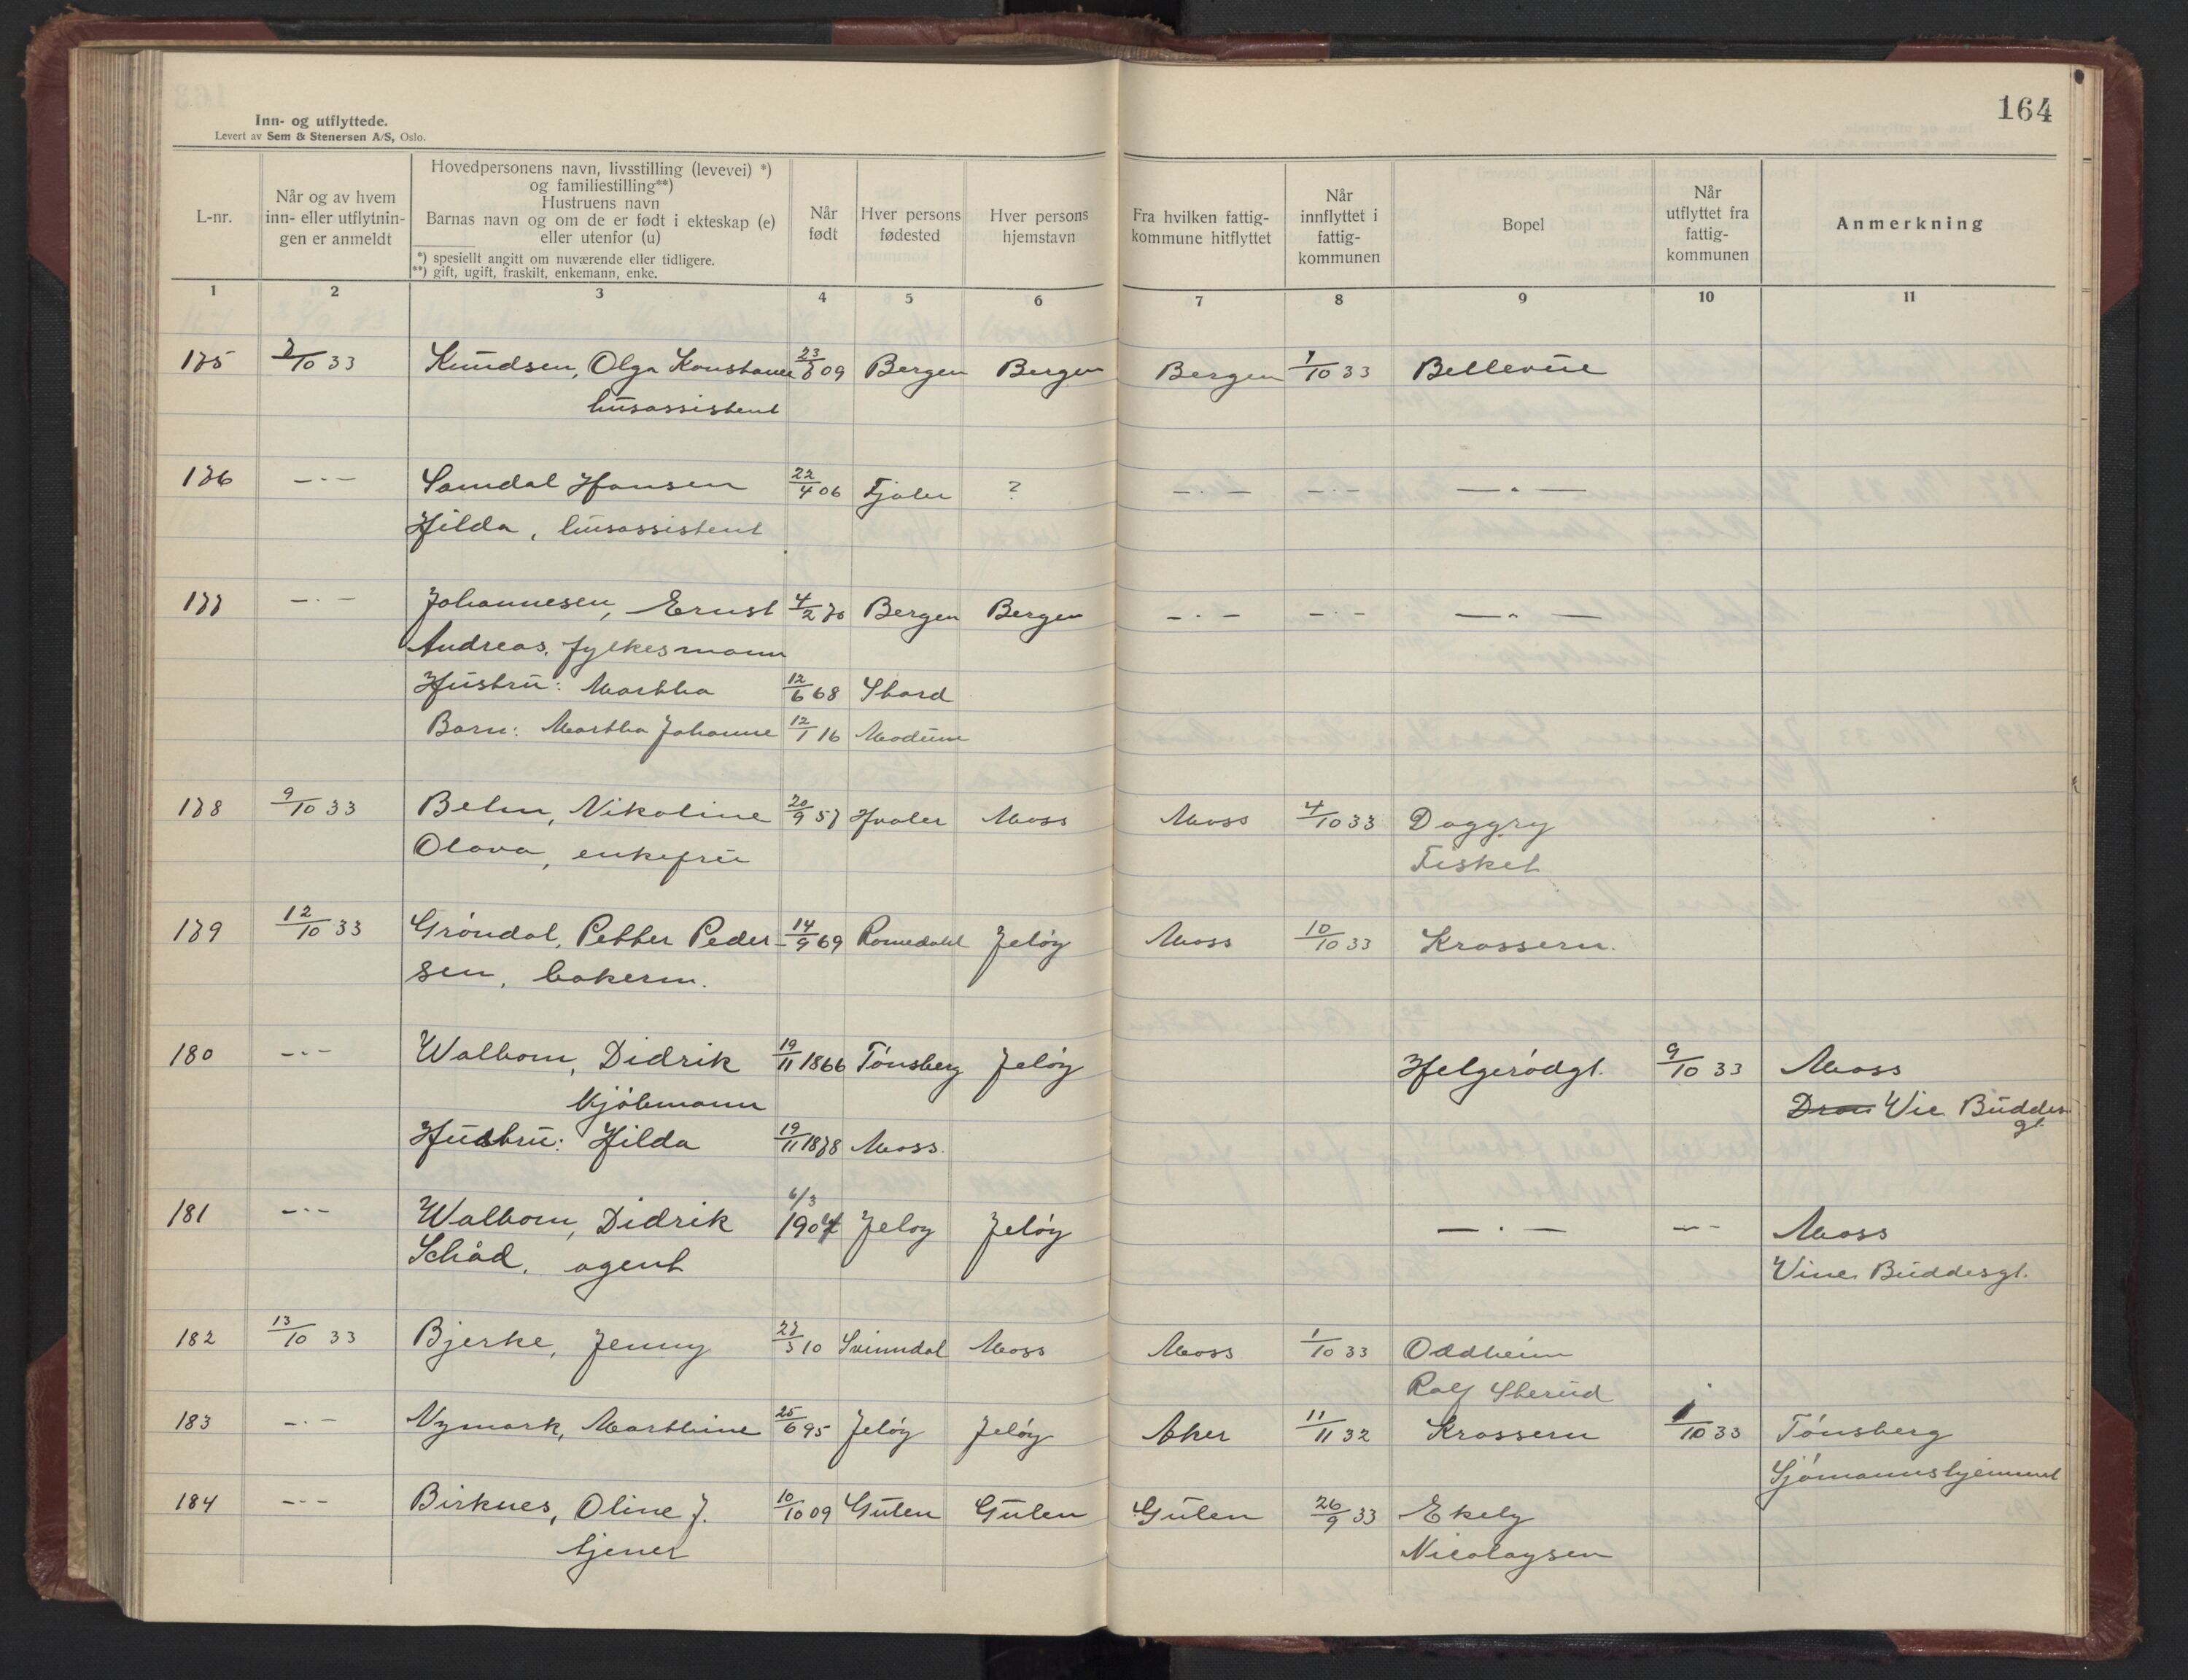 164
Inn- og utflyttede.
Levert av Sem & Stenersen A/S, Oslo.
L-nr.
Når og av hvem inn- eller utflytningen er anmeldt
Hovedpersonens navn, livsstilling (levevei) *)
og familiestilling**)
Hustruens navn
Barnas navn og om de er født i ekteskap (e)
eller utenfor (u)
*) spesiellt angitt om nuværende eller tidligere.
**) gift, ugift, fraskilt, enkemann, enke.
Når født
Hver persons fødested
Hver persons hjemstavn
Fra hvilken fattigkommune hitflyttet
Når innflyttet i fattigkommunen
Bopel
Når utflyttet fra fattigkommunen
Anmerkning
1 2 3 4 5 6 7 8 9 10 11
175 7/10 33 Knudsen, Olga Konstance 23/8 09 Bergen Bergen Bergen 1/10 33 Bellevue
husassistent
176 —·— Samdal Hansen 22/4 06 Fjaler ? —·— —·— —„—
Hilda, husassistent
177 —·— Johannesen, Ernst 4/2 70 Bergen Bergen —·— —·— —„—
Andreas, fylkesmann
Hustru: Martha 12/6 68 Stord
Barn: Martha Johanne 12/1 16 Modum
178 9/10 33 Behn, Nikoline 20/9 57 Hvaler Moss Moss 4/10 33 Daggry
Olava, enkefru Fisket
179 12/10 33 Gröndal, Petter Peder- 14/9 69 Romedahl Jelöy Moss 10/10 33 Krossern.
sen, bakerm.
180 —·— Walbom, Didrik 19/11 1866 Tönsberg Jelöy Helgerödgt. 9/10 33 Moss
Kjöbmann Vie Buddes
gt.
Hustru: Hilda 19/11 1878 Moss.
181 —·— Walbom, Didrik 6/3 1904 Jeloy Jelöy —·— —·— Moss
Schåd, agent Vine Buddesgt.
182 13/10 33 Bjerke, Jenny 27/3 10 Svinndal Moss Moss 1/10 33 Oddheim
Rolf Sterud
183 —·— Nymark, Marthine 25/6 95 Jelöy Jelöy Aker 11/11 32 Krossern 1/10 33 Tönsberg
Sjömannshjemmet
184 —·— Birknes, Oline J. 10/10 09 Gulen Gulen Gulen 26/9 33 Ekely
tjener Nicolaysen